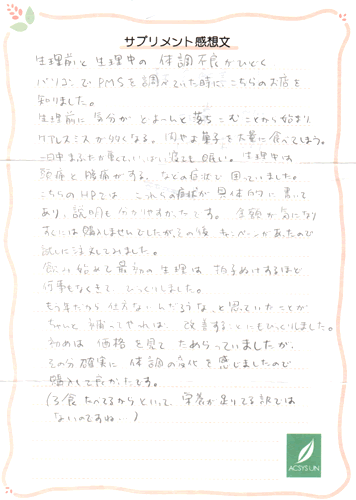 サプリメント感想文
生理前と生理中の 体調不良がひどく
パソコンでPMSを調べていた時に、こちらのお店を
知りました。
生理前に気分が どよーんと落ちこむことから始まり
ケアレスミスが多くなる。肉やお菓子を大量に食べてしまう。
一日中まぶたが重くていっぱい寝ても眠い。生理中は
頭痛と腰痛がする、などの症状で困っていました。
こちらのHPでは これらの症状が具体的に書いて
あり、説明も分かりやすかったです。金額が気になり
すぐには購入しませんでしたが、その後キャンペーンがあったので
試しに注文してみました。
飲み始めて最初の生理は 拍子ぬけするほど
何事もなくきて びっくりしました。
もう年だから仕方ないんだろうな、と思っていたことが
ちゃんと補ってやれば、改善することにもびっくりしました。
初めは 価格を見て ためらっていましたが、
その分確実に 体調の変化を感じましたので
購入して良かったです。
(3食たべてるからといって、栄養が足りてる訳では
ないのですね・・)
ACSYSUN